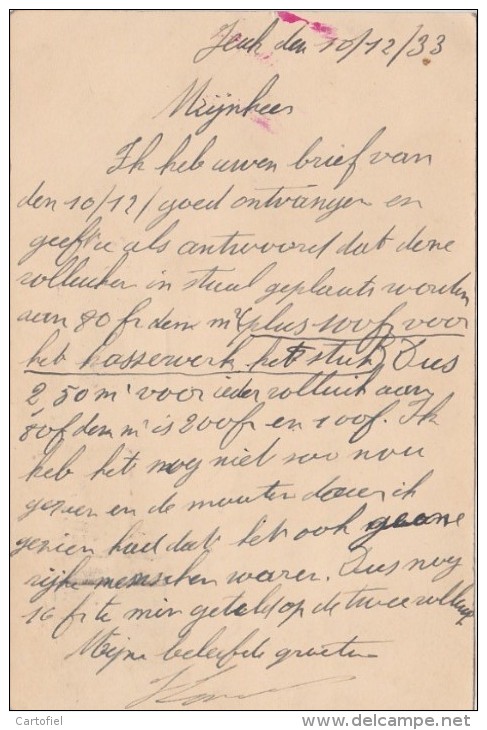 Jeuk den 10/12/33
Mijnheer
Ik heb uwen brief van
den 10/12/ goed ontvangen en
geef u als antwoord dat deze
rolluiken in staal geplaats worden
aan 80 fr dem m² (plus 100f voor
het kassewerk het stuk) Dus
2,50 m² voor ieder rolluik aan
80f dem m² is 200fr en 100f. Ik
heb het nog niet zoo nou
gezien en de
gezien had dat het ook geene
rijke menschen waren. Dus nog
16 fr te min geteld op de twee rolluik
Mijne beleefde groeten
Cartofiel
www.delcampe.net